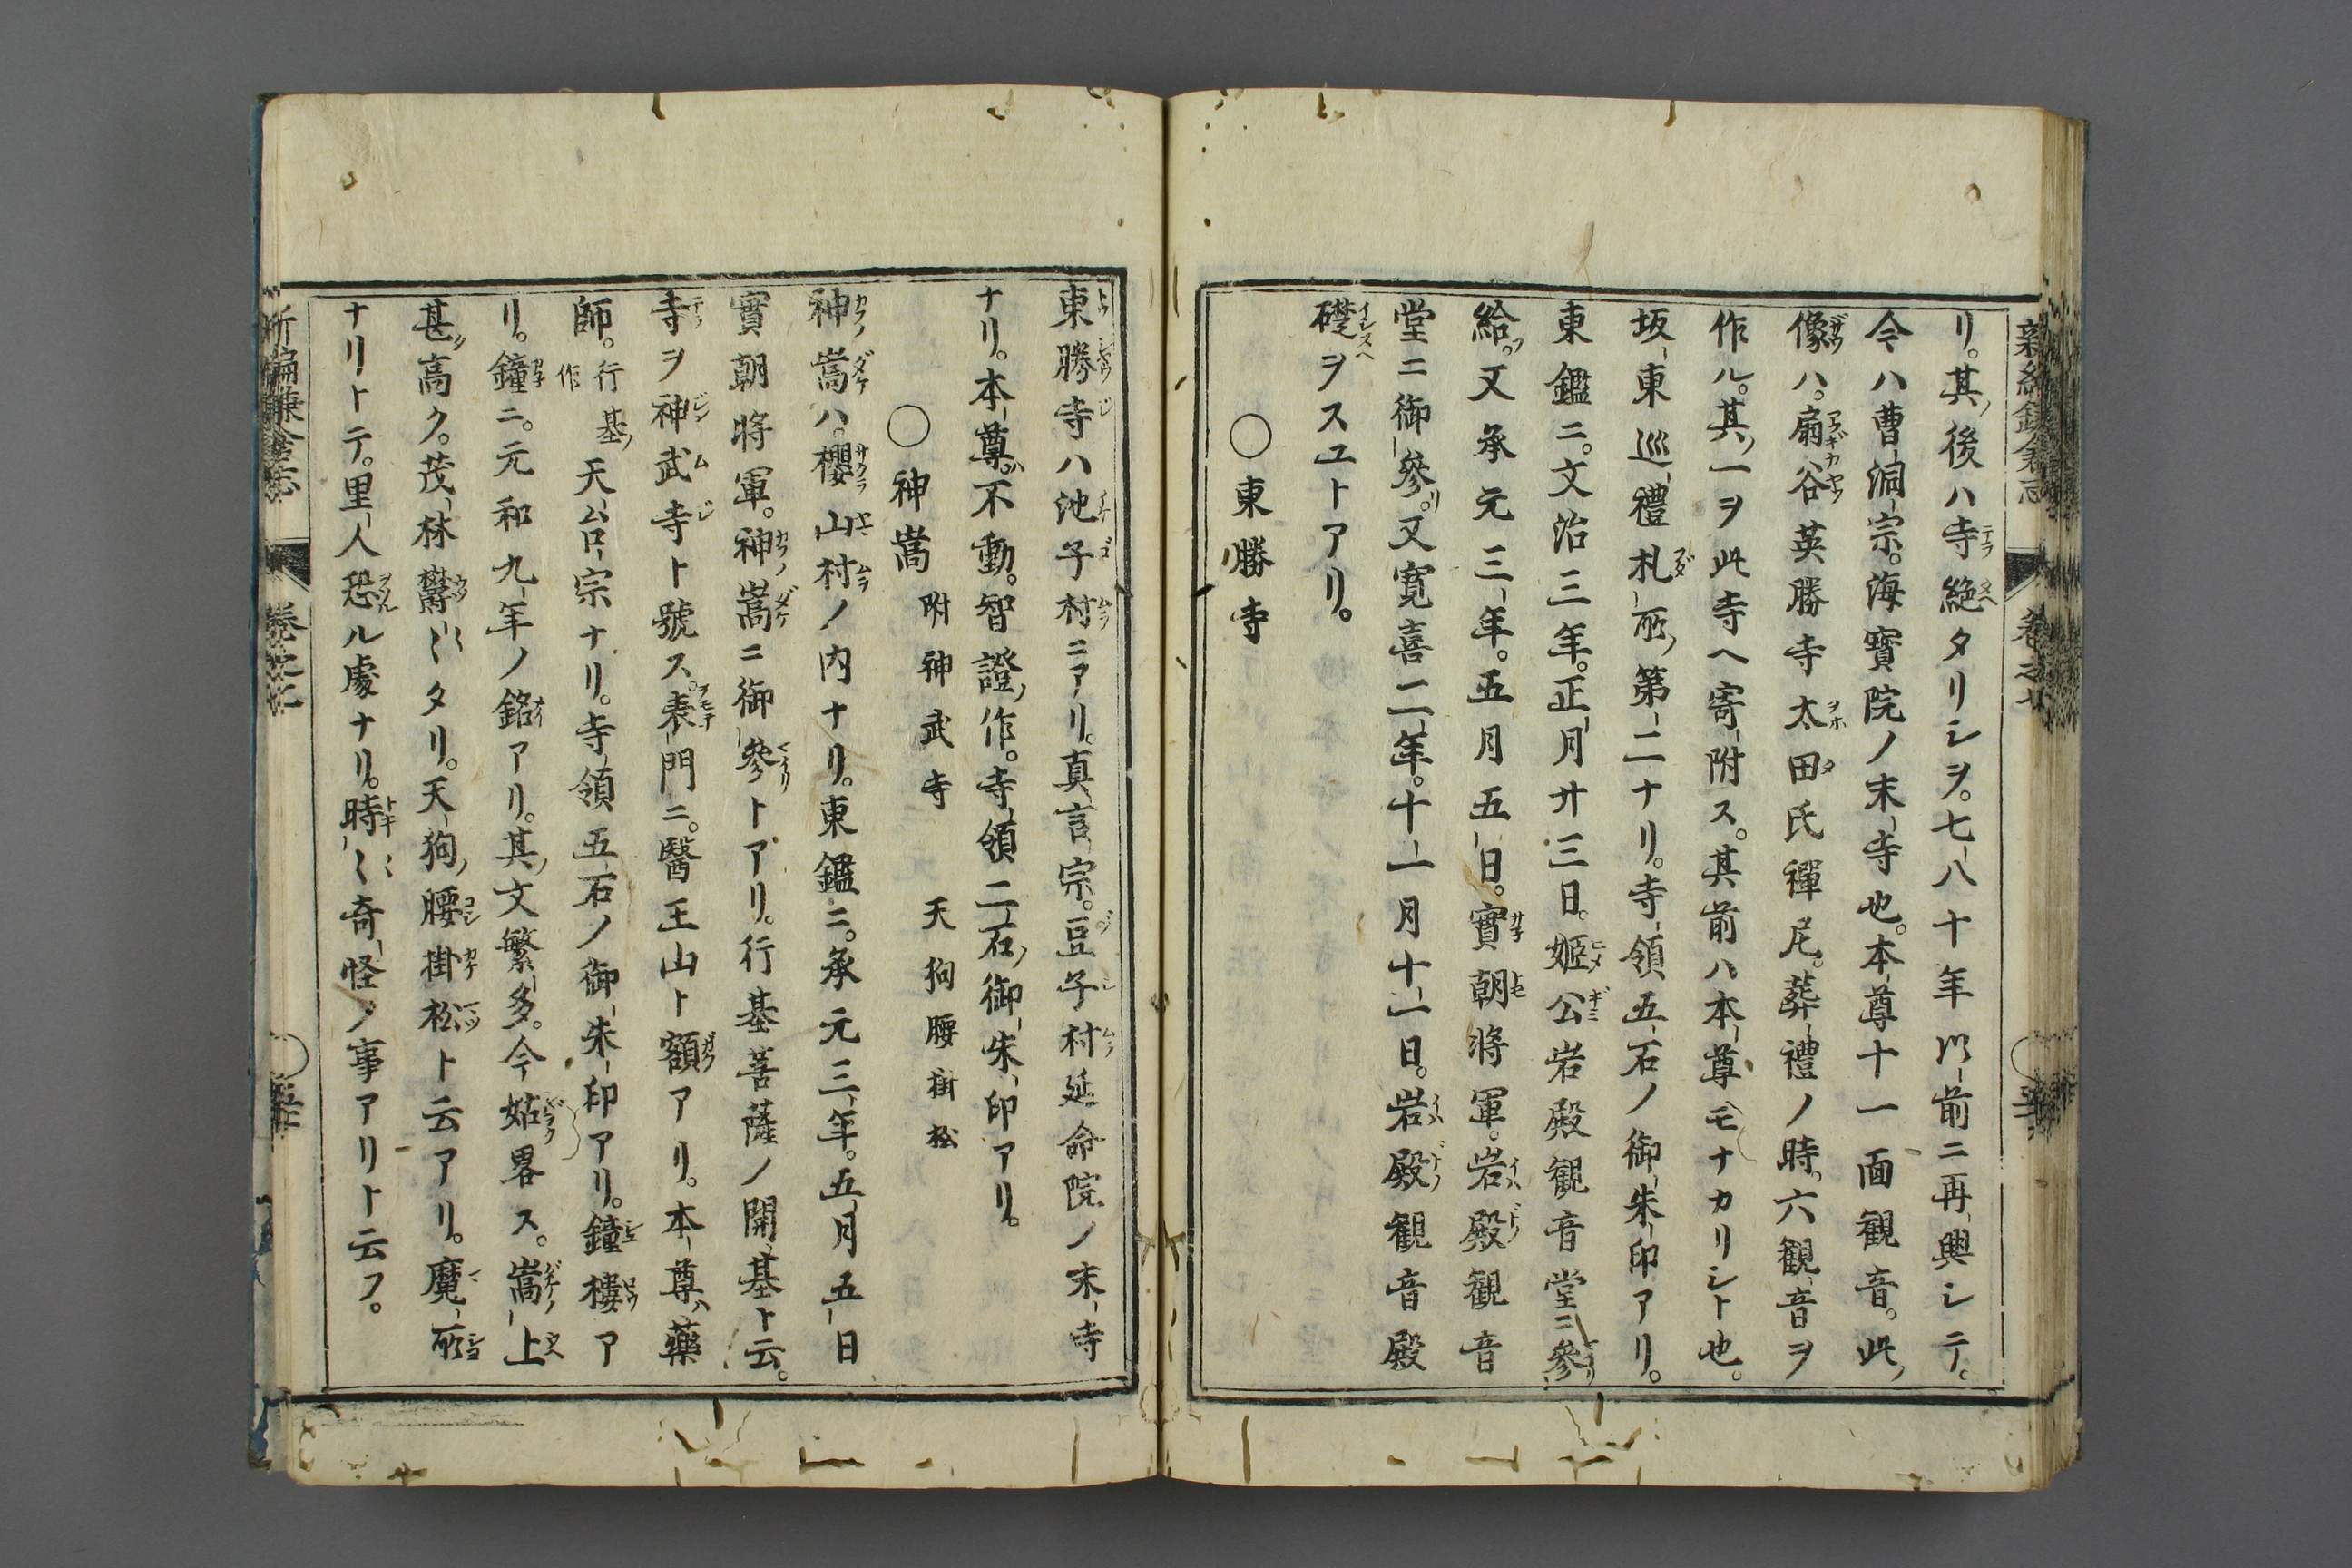 リ。其後ハ寺絶タリシヲ。七八十年以前ニ再興シテ。
今ハ曹洞宗。海寶院ノ末寺也。本尊十一面観音。此
像ハ。扇谷英勝寺太田氏禪尼。葬禮ノ時。六観音ヲ
作ル。其一ヲ此寺ヘ寄附ス。其前ハ本尊モナカリシト也。
坂東巡禮札所第二ナリ。寺領五石ノ御朱印アリ。
東鑑ニ。文治三年。正月廿三日。姫公岩殿観音堂ニ參
給フ。又承元三年。五月五日。實朝將軍。岩殿観音
堂ニ御參リ。又寛喜二年。十一月十一日。岩殿観音殿
礎ヲスユトアリ。
○東勝寺
東勝寺ハ池子村ニアリ。真言宗。豆子村延命院ノ末寺
ナリ。本尊ハ不動。智證ノ作。寺領二石ノ御朱印アリ。
○神嵩 附神武寺 天狗腰掛松
神嵩ハ。櫻山村ノ内ナリ。東鑑ニ。承元三年。五月五日
實朝將軍。神嵩ニ御參トアリ。行基菩薩ノ開基ト云。
寺ヲ神武寺ト號ス。表門ニ。醫王山ト額アリ。本尊ハ藥
師。行基ノ作 天台宗ナリ。寺領五石ノ御朱印アリ。鐘樓ア
リ。鐘ニ。元和九年ノ銘アリ。其文繁多。今姑畧ス。嵩上
甚タ高ク。茂林欝〻タリ。天狗ノ腰掛松ト云アリ。魔所
ナリトテ。里人恐ル處ナリ。時〻奇怪ノ事アリト云フ。
新編鎌倉志
卷之七